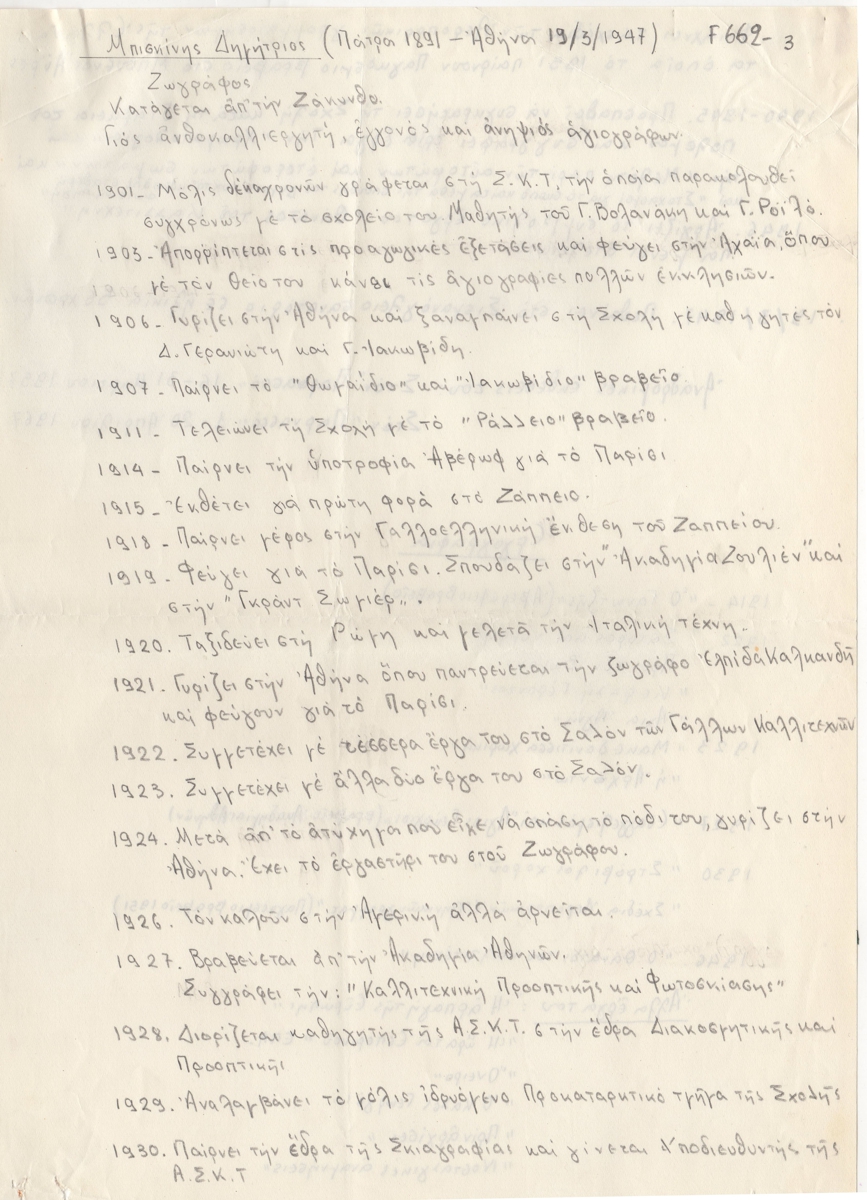 Μπισκίνης Δημήτριος (Πάτρα 1891 – Ἀθήνα 19/3/1947) F 669-3
Ζωγράφος
Κατάγεται ἀπ' τήν Ζάκυνθο.
Γιός ἀνθοκαλλιεργητῆ, ἐγγονός καί ἀνηψιός ἁγιογράφων.
1901 – Μόλις δέκαχρονῶν γράφεται στή Σ.Κ.Τ, τήν ὁποία παρακολουθεῖ
συγχρόνως μέ τό σχολεῖο του. Μαθητής τοῦ Γ. Βολανάκη καί Γ. Ροϊλό.
1903 – Ἀπορρίπτεται στίς προαγωγικές ἐξετάσεις καί φεύγει στήν Ἀχαΐα, ὅπου
μέ τόν θεῖο του κάνει τίς ἁγιογραφίες πολλῶν ἐκκλησιῶν.
1906 – Γυρίζει στήν Ἀθήνα καί ξαναμπαίνει στή Σχολή μέ καθηγητές τόν
Δ. Γερανιώτη καί Γ. Ἰακωβίδη.
1907 – Παίρνει τό "Θωμαΐδιο" καί "Ἰακωβίδιο" βραβεῖο
1911 – Τελειώνει τή Σχολή μέ τό "Ράλλειο" βραβεῖο.
1914 – Παίρνει τήν ὑποτροφία Ἀβέρωφ γιά τό Παρίσι
1915 – Ἐκθέτει γιά πρώτη φορά στό Ζάππειο.
1918 – Παίρνει μέρος στήν Γαλλοελληνική ἔκθεση τοῦ Ζαππείου.
1919 – Φεύγει γιά τό Παρίσι. Σπουδάζει στήν "Ἀκαδημία Ζουλιέν" καί
στήν "Γκράντ Σωμιέρ".
1920. Ταξιδεύει στή Ρώμη καί μελετᾶ τήν Ἰταλική τέχνη.
1921. Γυρίζει στήν Ἀθήνα ὅπου παντρεύεται τήν ζωγράφο Ἐλπίδα Καλκανδῆ
καί φεύγουν γιά τό Παρίσι.
1922. Συμμετέχει μέ τέσσερα ἔργα του στό Σαλόν τῶν Γάλλων Καλλιτεχνῶν
1923. Συμμετέχει μέ ἄλλα δύο ἔργα του στό Σαλόν.
1924. Μετά ἀπ' τό ἀτύχημα πού εἶχε νά σπάση τό πόδι του, γυρίζει στήν
Ἀθήνα. Ἔχει τό ἐργαστήρι του στοῦ Ζωγράφου.
1926. Τόν καλοῦν στήν Ἀμερική ἀλλά ἀρνεῖται.
1927. Βραβεύεται ἀπ' τήν Ἀκαδημία Ἀθηνῶν.
Συγγράφει τήν: "Καλλιτεχνική Προοπτικῆς καί Φωτοσκίασης"
1928. Διορίζεται καθηγητής τῆς Α.Σ.Κ.Τ. στήν ἕδρα Διακοσμητικῆς καί
Προοπτικῆς
1929. Ἀναλαμβάνει τό μόλις ἱδρυόμενο Προκαταρκτικό τμῆμα τῆς Σχολῆς
1930. Παίρνει τήν ἕδρα τῆς Σκιαγραφίας καί γίνεται Ὑποδιευθυντής τῆς
Α.Σ.Κ.Τ